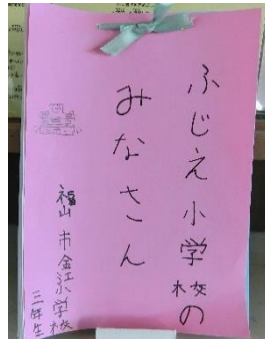 ふじえ小学校の
みなさん
福山市金江小学校
三年生